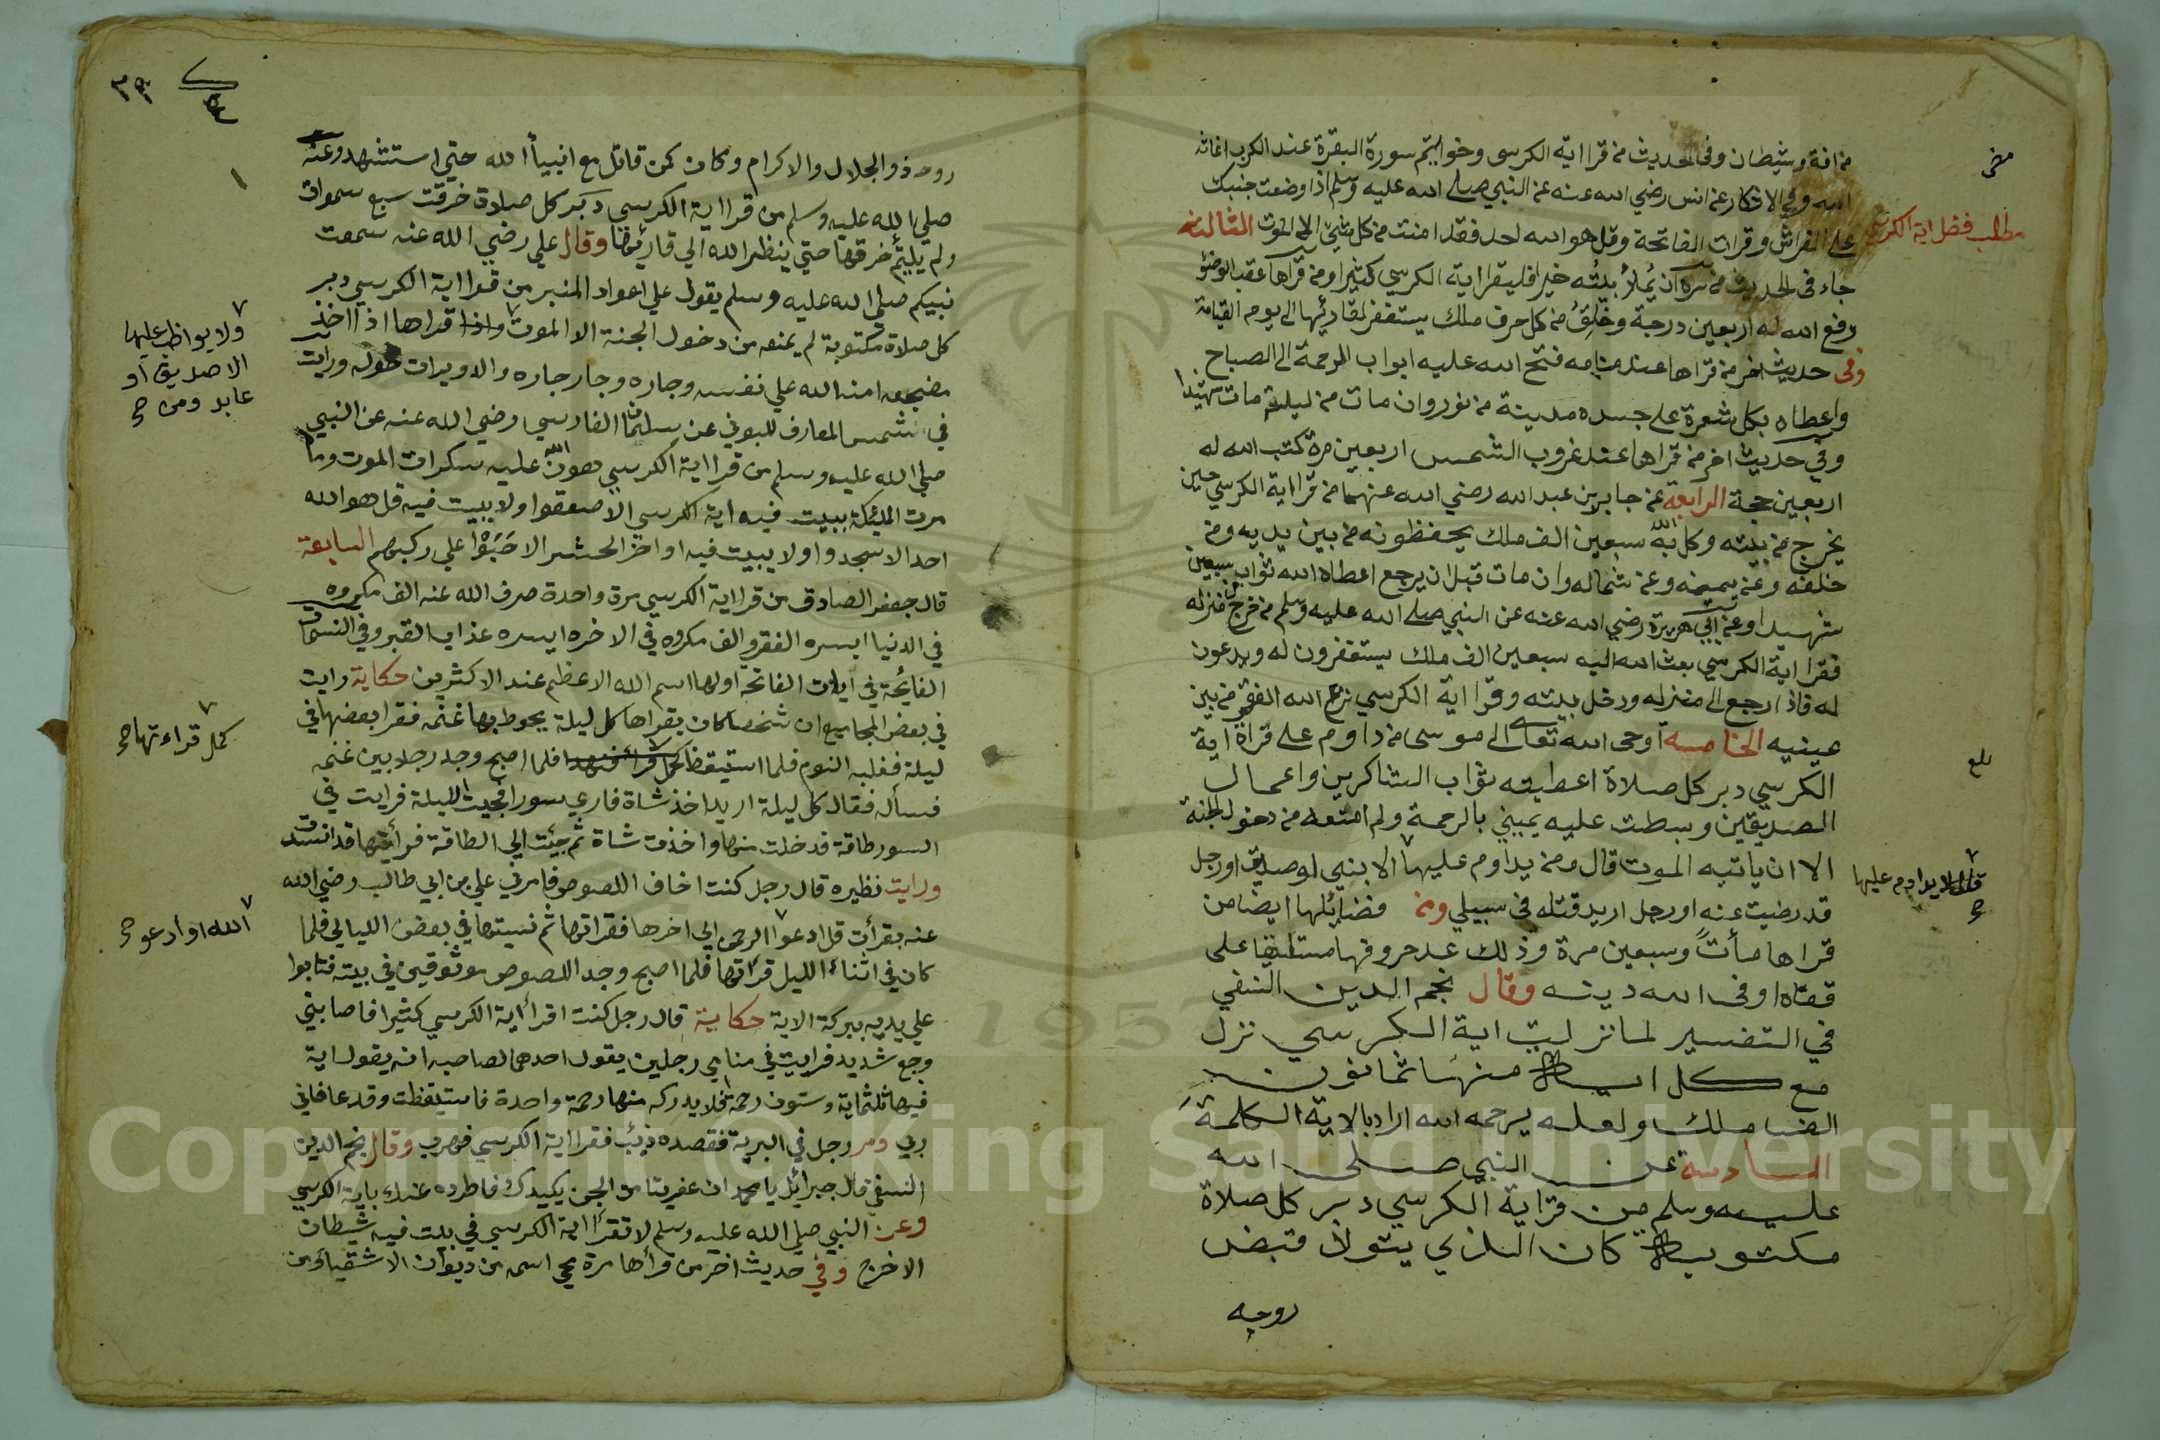 من افة وشيطان وفى الحديث من قرا اية الكرسى وخواتيم سورة البقرة عند الكرب اغاثه
الله وفى الاذكار عن انس رضي الله عنه عن النبي صلى الله عليه وسلم اذا وضعت جنبك
على الفراش وقرات الفاتحة وقل هو الله احد فقد امنت من كل شئ الا الموت الثالثة
جاء فى الحديث من سره ان يُملأ بيته خيرا فليقرا اية الكرسي كثيرا ومن قراها عقب الوضؤ
رفع الله له اربعين درجة وخلق من كل حرف ملك يستغفر لقارئها الى يوم القيامة
وفى حديث اخر من قراها عند منامه فتح الله عليه ابواب الرحمة الى الصباح
واعطاه بكل شعرة على جسده مدينة من نور وان مات من ليلته مات شهيدا
وفي حديث اخر من قراها عند غروب الشمس اربعين مرة كتب الله له
اربعين حجة الرابعة عن جابر بن عبد الله رضي الله عنهما من قرا اية الكرسي حين
يخرج من بيته وكل الله به سبعين الف ملك يحفظونه من بين يديه ومن
خلفه وعن يمينه وعن شماله وان مات قبل ان يرجع اعطاه الله ثواب سبعين
شهيدا وعن ابي هريرة رضي الله عنه عن النبي صلى الله عليه وسلم من خرج من منزله
فقرا اية الكرسي بعث الله اليه سبعين الف ملك يستغفرون له ويدعون
له فاذا رجع الى منزله ودخل بيته وقرا اية الكرسي نزع الله الفقر من بين
عينيه الخامسة اوحى الله تعالى الى موسى من داوم على قراة اية
الكرسي دبر كل صلاة اعطيته ثواب الشاكرين واعمال
الصديقين وبسطت عليه يميني بالرحمة ولم امنعه من دخول الجنة
الا ان ياتيه الموت قال ومن يداوم عليها الا نبي او صديق او رجل
قد رضيت عنه او رجل اريد قتله في سبيلي ومن فضائلها ايضا من
قراها مأت وسبعين مرة وذلك عدد حروفها مستلقيا على
قفاه اوفى الله دينه وقال نجم الدين النسفي
في التفسير لما نزلت اية الكرسي نزل
مع كل اية منها ثمانون
الف ملك ولعله يرحمه الله اراد بالاية الكلمة
السادسة عن النبي صلى الله
عليه وسلم من قرا اية الكرسي دبر كل صلاة
مكتوبة كان الذي يتولى قبض
روحه
مطلب فضل اية الكرسي
بلغ
قال لا يداوم عليها
٣٩
روحه ذو الجلال والاكرام وكان كمن قاتل مع انبيأ الله حتي استشهد وعنه
صلي الله عليه وسلم من قرا اية الكرسي دبر كل صلاة خرقت سبع سموات
ولم يلتئم خرقها حتي ينظر الله الي قارئها وقال علي رضي الله عنه سمعت
نبيكم صلي الله عليه وسلم يقول علي اعواد المنبر من قرا اية الكرسي دبر
كل صلاة مكتوبة لم يمنعه من دخول الجنة الا الموت واذا قراها اذا اخذ
مضجعه امنه الله علي نفسه وجاره وجار جاره والدويرات حوله ورايت
في شمس المعارف للبوني عن سلمان الفارسي رضي الله عنه عن النبي
صلي الله عليه وسلم من قرا اية الكرسي هون الله عليه سكرات الموت وما
مرت الملئكة ببيت فيه اية الكرسي الا صعقوا ولا ببيت فيه قل هو الله
احد الا سجدوا ولا ببيت فيه اواخر الحشر الا حَبَوْا علي ركبهم السابعة
قال جعفر الصادق من قرا اية الكرسي مرة واحدة صرف الله عنه الف مكروه
في الدنيا ايسره الفقر والف مكروه في الاخره ايسره عذاب القبر وفي النسمات
الفائحة في ايات الفاتحة اولها اسم الله الاعظم عند الاكثرين حكاية رايت
في بعض المجاميع ان شخصا كان يقراها كل ليلة يحوط بها غنمه فقرا بعضها في
ليلة فغلبه النوم فلما استيقظ فلما اصبح وجد رجلا بين غنمه
فسأله فقال كل ليلة اريد اخذ شاة فاري سورا فجيت الليلة فرايت في
السور طاقة فدخلت منها واخذت شاة ثم جئت الي الطاقة فرأيتها قد انسدت
ورايت نظيره قال رجل كنت اخاف اللصوص فامرني علي بن ابي طالب رضي الله
عنه بقرأت قل ادعوا الرحمن الي اخرها فقراتها ثم نسيتها في بعض الليالي فلما
كان في اثناء الليل قراتها فلما اصبح وجد اللصوص موثوقين في بيته فتابوا
علي يديه ببركة الاية حكاية قال رجل كنت اقرأ اية الكرسي كثيرا فاصابني
وجع شديد فرايت في منامي رجلين يقول احدهما لصاحبه انه يقول اية
فيها ثلثماية وستون رحمة فلا يدركه منها رحمة واحدة فاستيقظت وقد عافاني
ربي ومر رجل في البرية فقصده ذئب فقرا اية الكرسي فهرب وقال نجم الدين
النسفي قال جبرائيل يا محمد ان عفريتا من الجن يكيدك فاطرده عنك باية الكرسي
وعن النبي صلي الله عليه وسلم لا تقرأ اية الكرسي في بيت فيه شيطان
الا خرج وفي حديث اخر من قرأها مرة محي اسمه من ديوان الاشقياء ومن
ولا يواظب عليها
الا صديق او
عابد ومن
كمل قراءتها
الله او ادعو
1957
Copyright © King Saud University